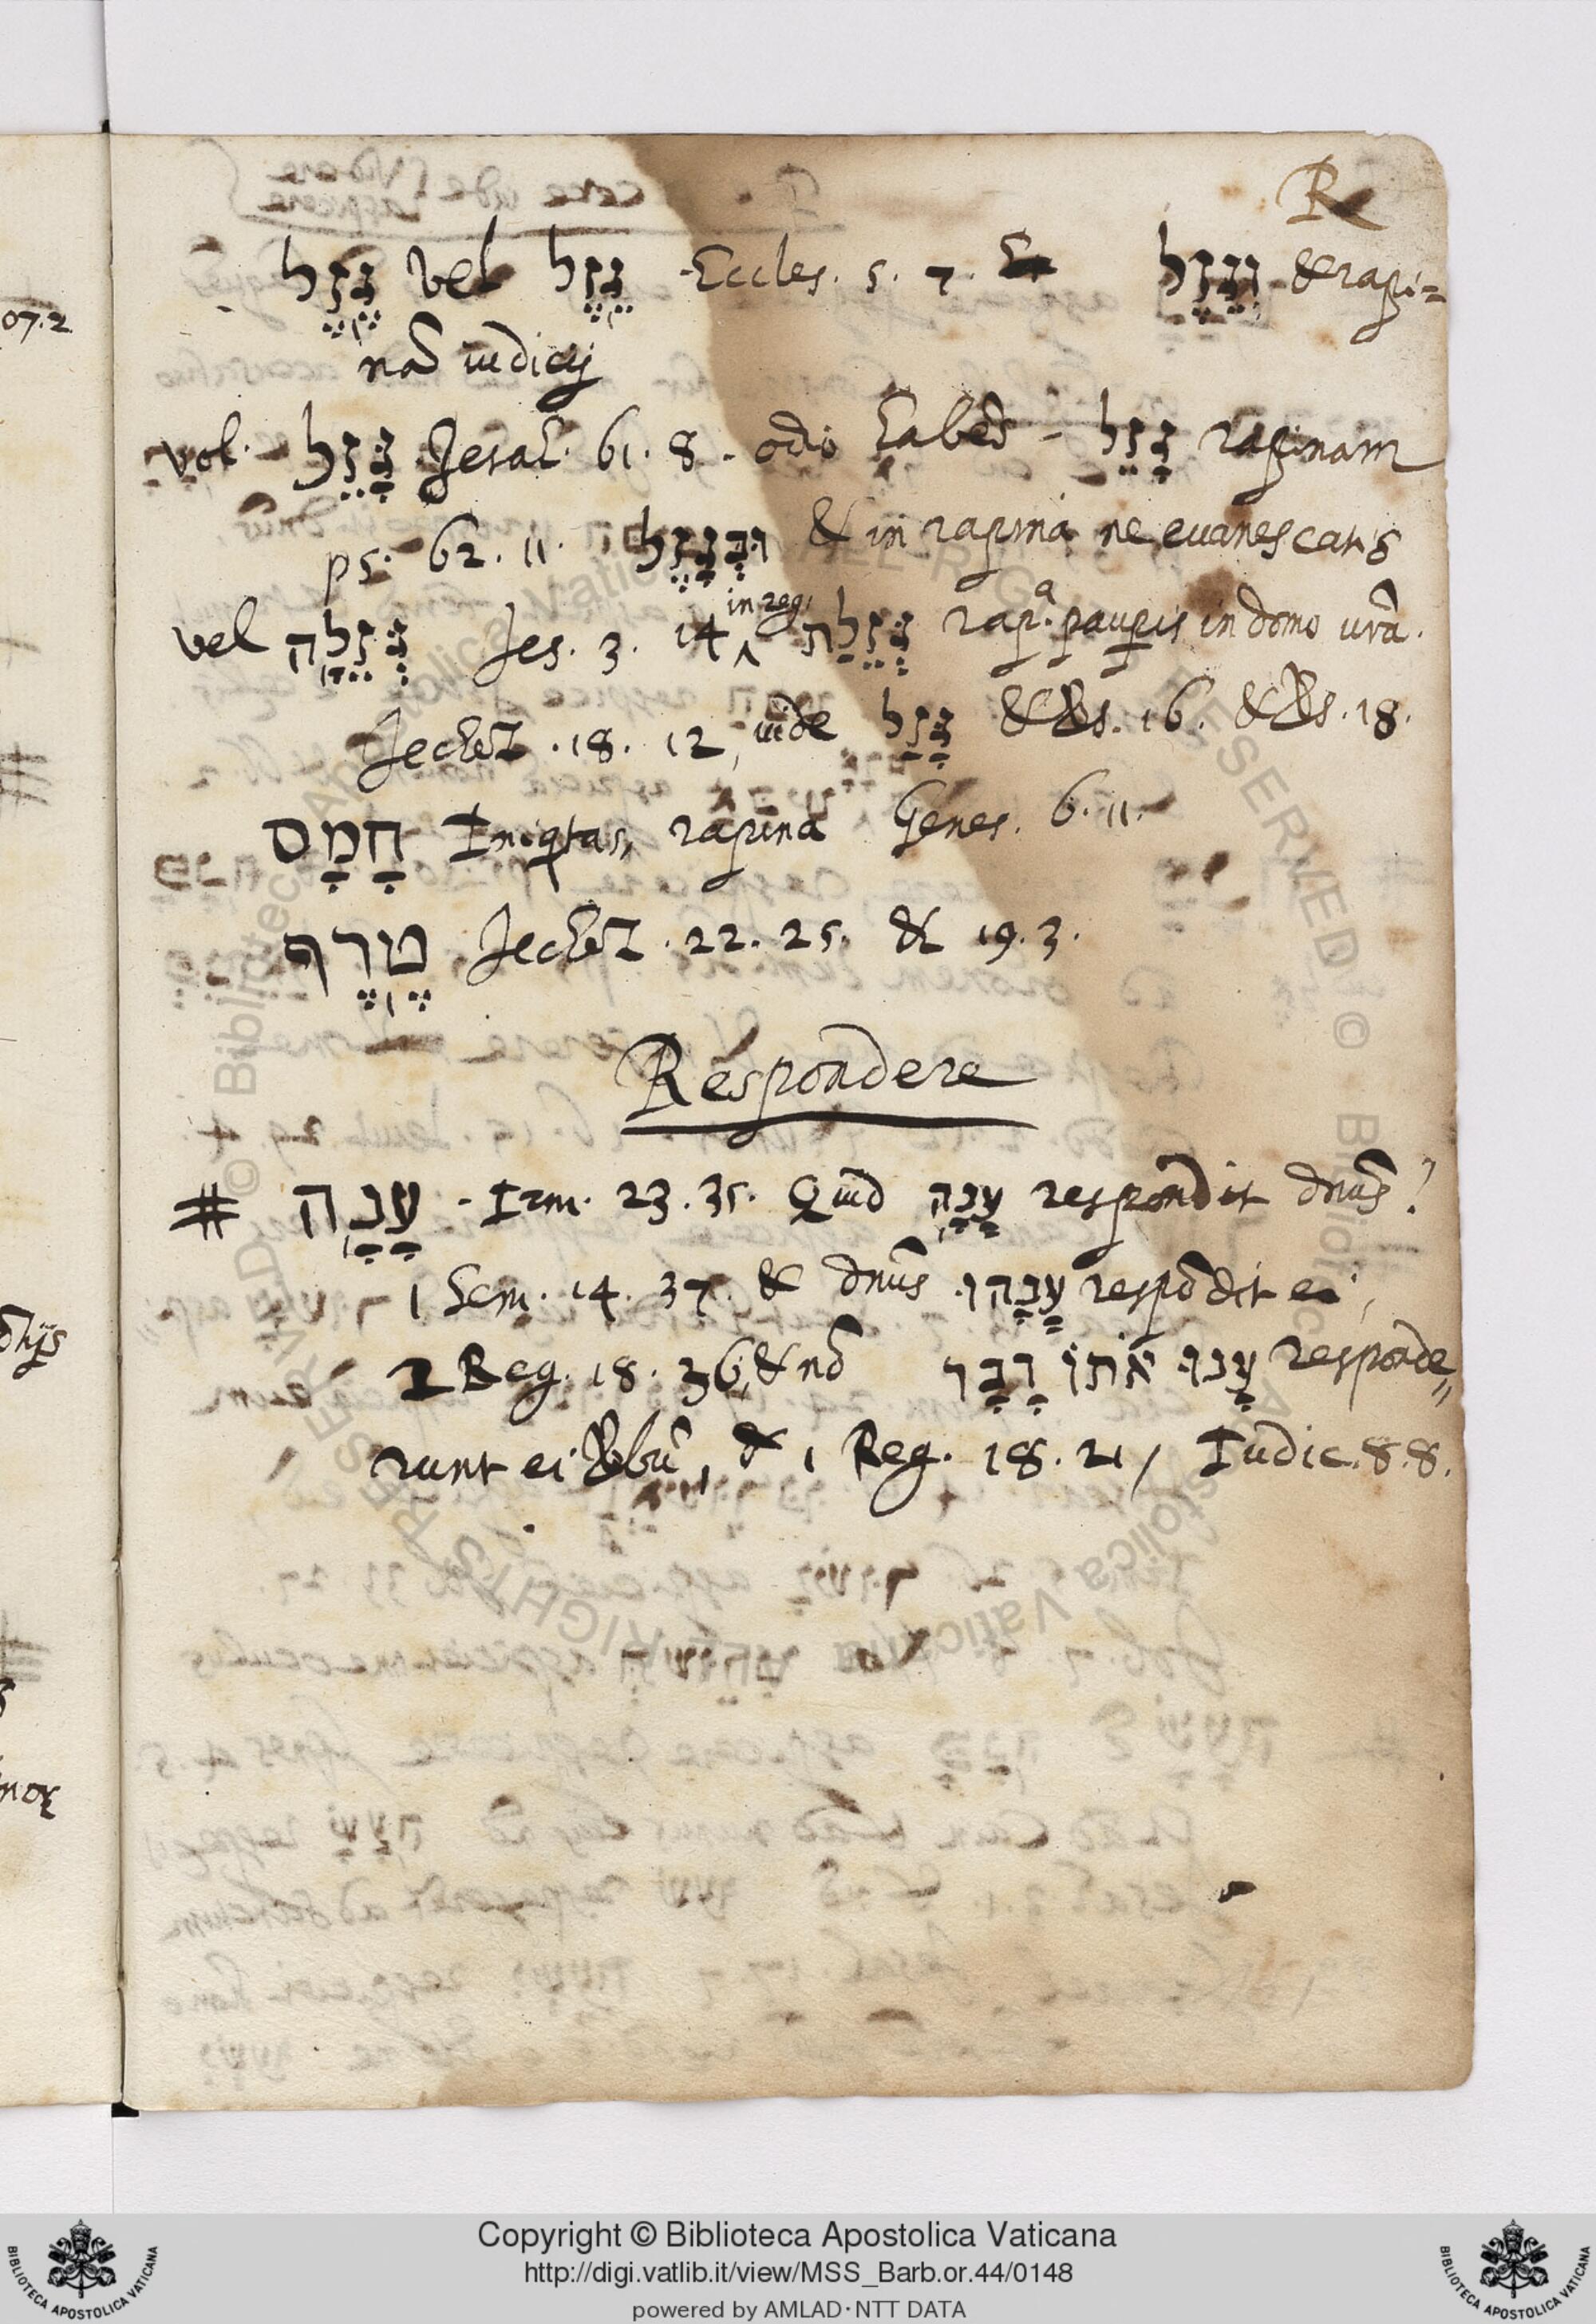 R
גֶּזֶל vel גֵּזֶל Eccles. 5. 7. וְגֵזֶל & rapi=
nã iudicij
vel גָּזֵל Jesai. 61. 8. odio habes - גָּזֵל rapinam
ps. 62. 11. וּבְגָזֵל & in rapina ne evanescatis
vel גְּזֵלָה Jes. 3. 14 in reg. גְּזֵלַת rap.ª paupis in domo vrã.
Jechez. 18. 12, vide גָּזַל & vs. 16. & vs. 18.
חָמָס Iniqtas, rapina Genes. 6. 11.
טֶרֶף Jechez. 22. 25. & 19. 3.
Respondere
# עָנָה - Irm. 23. 35. Quid עָנָה respondit dnus?
1 Sem. 14. 37. & dnus עָנָהוּ respõdit ei,
2 Reg. 18. 36, & nõ עָנוּ אֹתוֹ דָבָר responde„
runt ei vbũ, & 1 Reg. 18. 21, Iudic. 8. 8.
07.2
Copyright © Biblioteca Apostolica Vaticana
http://digi.vatlib.it/view/MSS_Barb.or.44/0148
powered by AMLAD·NTT DATA
BIBLIOTECA APOSTOLICA VATICANA
BIBLIOTECA APOSTOLICA VATICANA